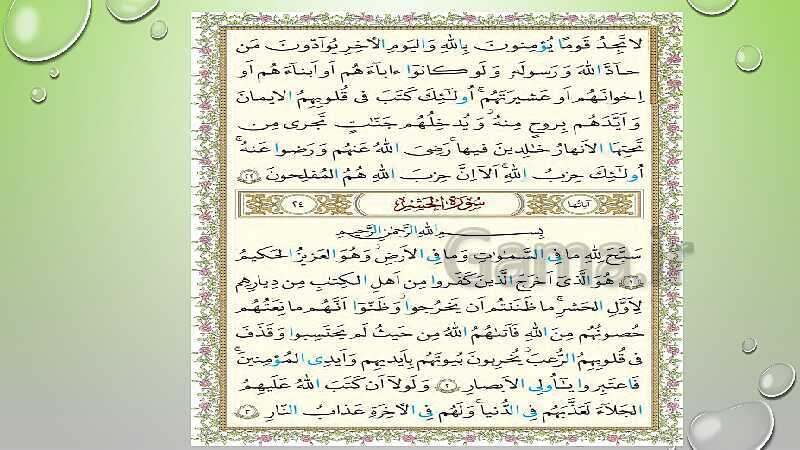 لا تَجِدُ قَومًا يُؤمِنونَ بِاللّٰهِ وَ اليَومِ الآخِرِ يُوآدّونَ مَن
حآدَّ اللّٰهَ وَ رَسولَهٗ وَ لَو كانوا ءاباءَهُم أَو أَبناءَهُم أَو
إِخوانَهُم أَو عَشيرَتَهُم ۚ أُولٰئِكَ كَتَبَ فى قُلوبِهِمُ الإيمانَ
وَ أَيَّدَهُم بِروحٍ مِنهُ ۖ وَ يُدخِلُهُم جَنّاتٍ تَجرى مِن
تَحتِهَا الأَنهارُ خالِدينَ فيها ۚ رَضِىَ اللّٰهُ عَنهُم وَ رَضوا عَنهُ ۚ
أُولٰئِكَ حِزبُ اللّٰهِ ۚ أَلآ إِنَّ حِزبَ اللّٰهِ هُمُ المُفلِحونَ ٢٢
آياتها سورة الحشر ٢٤
بِسمِ اللّٰهِ الرَّحمٰنِ الرَّحيمِ
سَبَّحَ لِلّٰهِ ما فِى السَّمٰوٰتِ وَ ما فِى الأَرضِ ۖ وَ هُوَ العَزيزُ الحَكيمُ
١ هُوَ الَّذى أَخرَجَ الَّذينَ كَفَروا مِن أَهلِ الكِتٰبِ مِن دِيارِهِم
لِأَوَّلِ الحَشرِ ۚ ما ظَنَنتُم أَن يَخرُجوا ۖ وَ ظَنّوا أَنَّهُم مانِعَتُهُم
حُصونُهُم مِنَ اللّٰهِ فَأَتاهُمُ اللّٰهُ مِن حَيثُ لَم يَحتَسِبوا ۖ وَ قَذَفَ
فى قُلوبِهِمُ الرُّعبَ ۚ يُخرِبونَ بُيوتَهُم بِأَيديهِم وَ أَيدِى المُؤمِنينَ
فَاعتَبِروا يٰأُولِى الأَبصارِ ٢ وَ لَولا أَن كَتَبَ اللّٰهُ عَلَيهِمُ
الجَلاءَ لَعَذَّبَهُم فِى الدُّنيا ۖ وَ لَهُم فِى الآخِرَةِ عَذابُ النّارِ ٣
Gama.ir